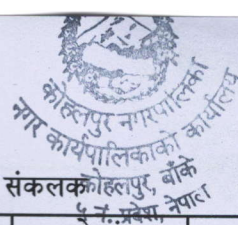 कोहलपुर नगरपालिका
नगर कार्यपालिकाको कार्यालय
संकलक
कोहलपुर, बाँके
५ नं. प्रदेश, नेपाल